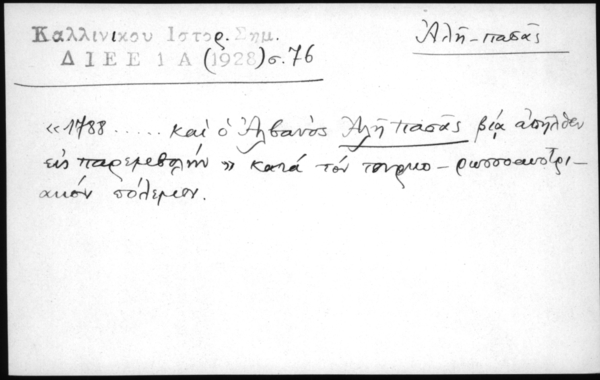 Καλλινίκου Ιστορ. Σημ.
Ἀλῆ-πασᾶς
ΔΙΕΕ 1 Α (1928) σ. 76
«1788 ..... καὶ ὁ Ἀλβανὸς Ἀλῆ πασᾶς βίᾳ ἀπῆλθεν
εἰς παρεμβολὴν» κατά τόν τουρκο-ρωσσοαυστρι-
ακόν πόλεμον.